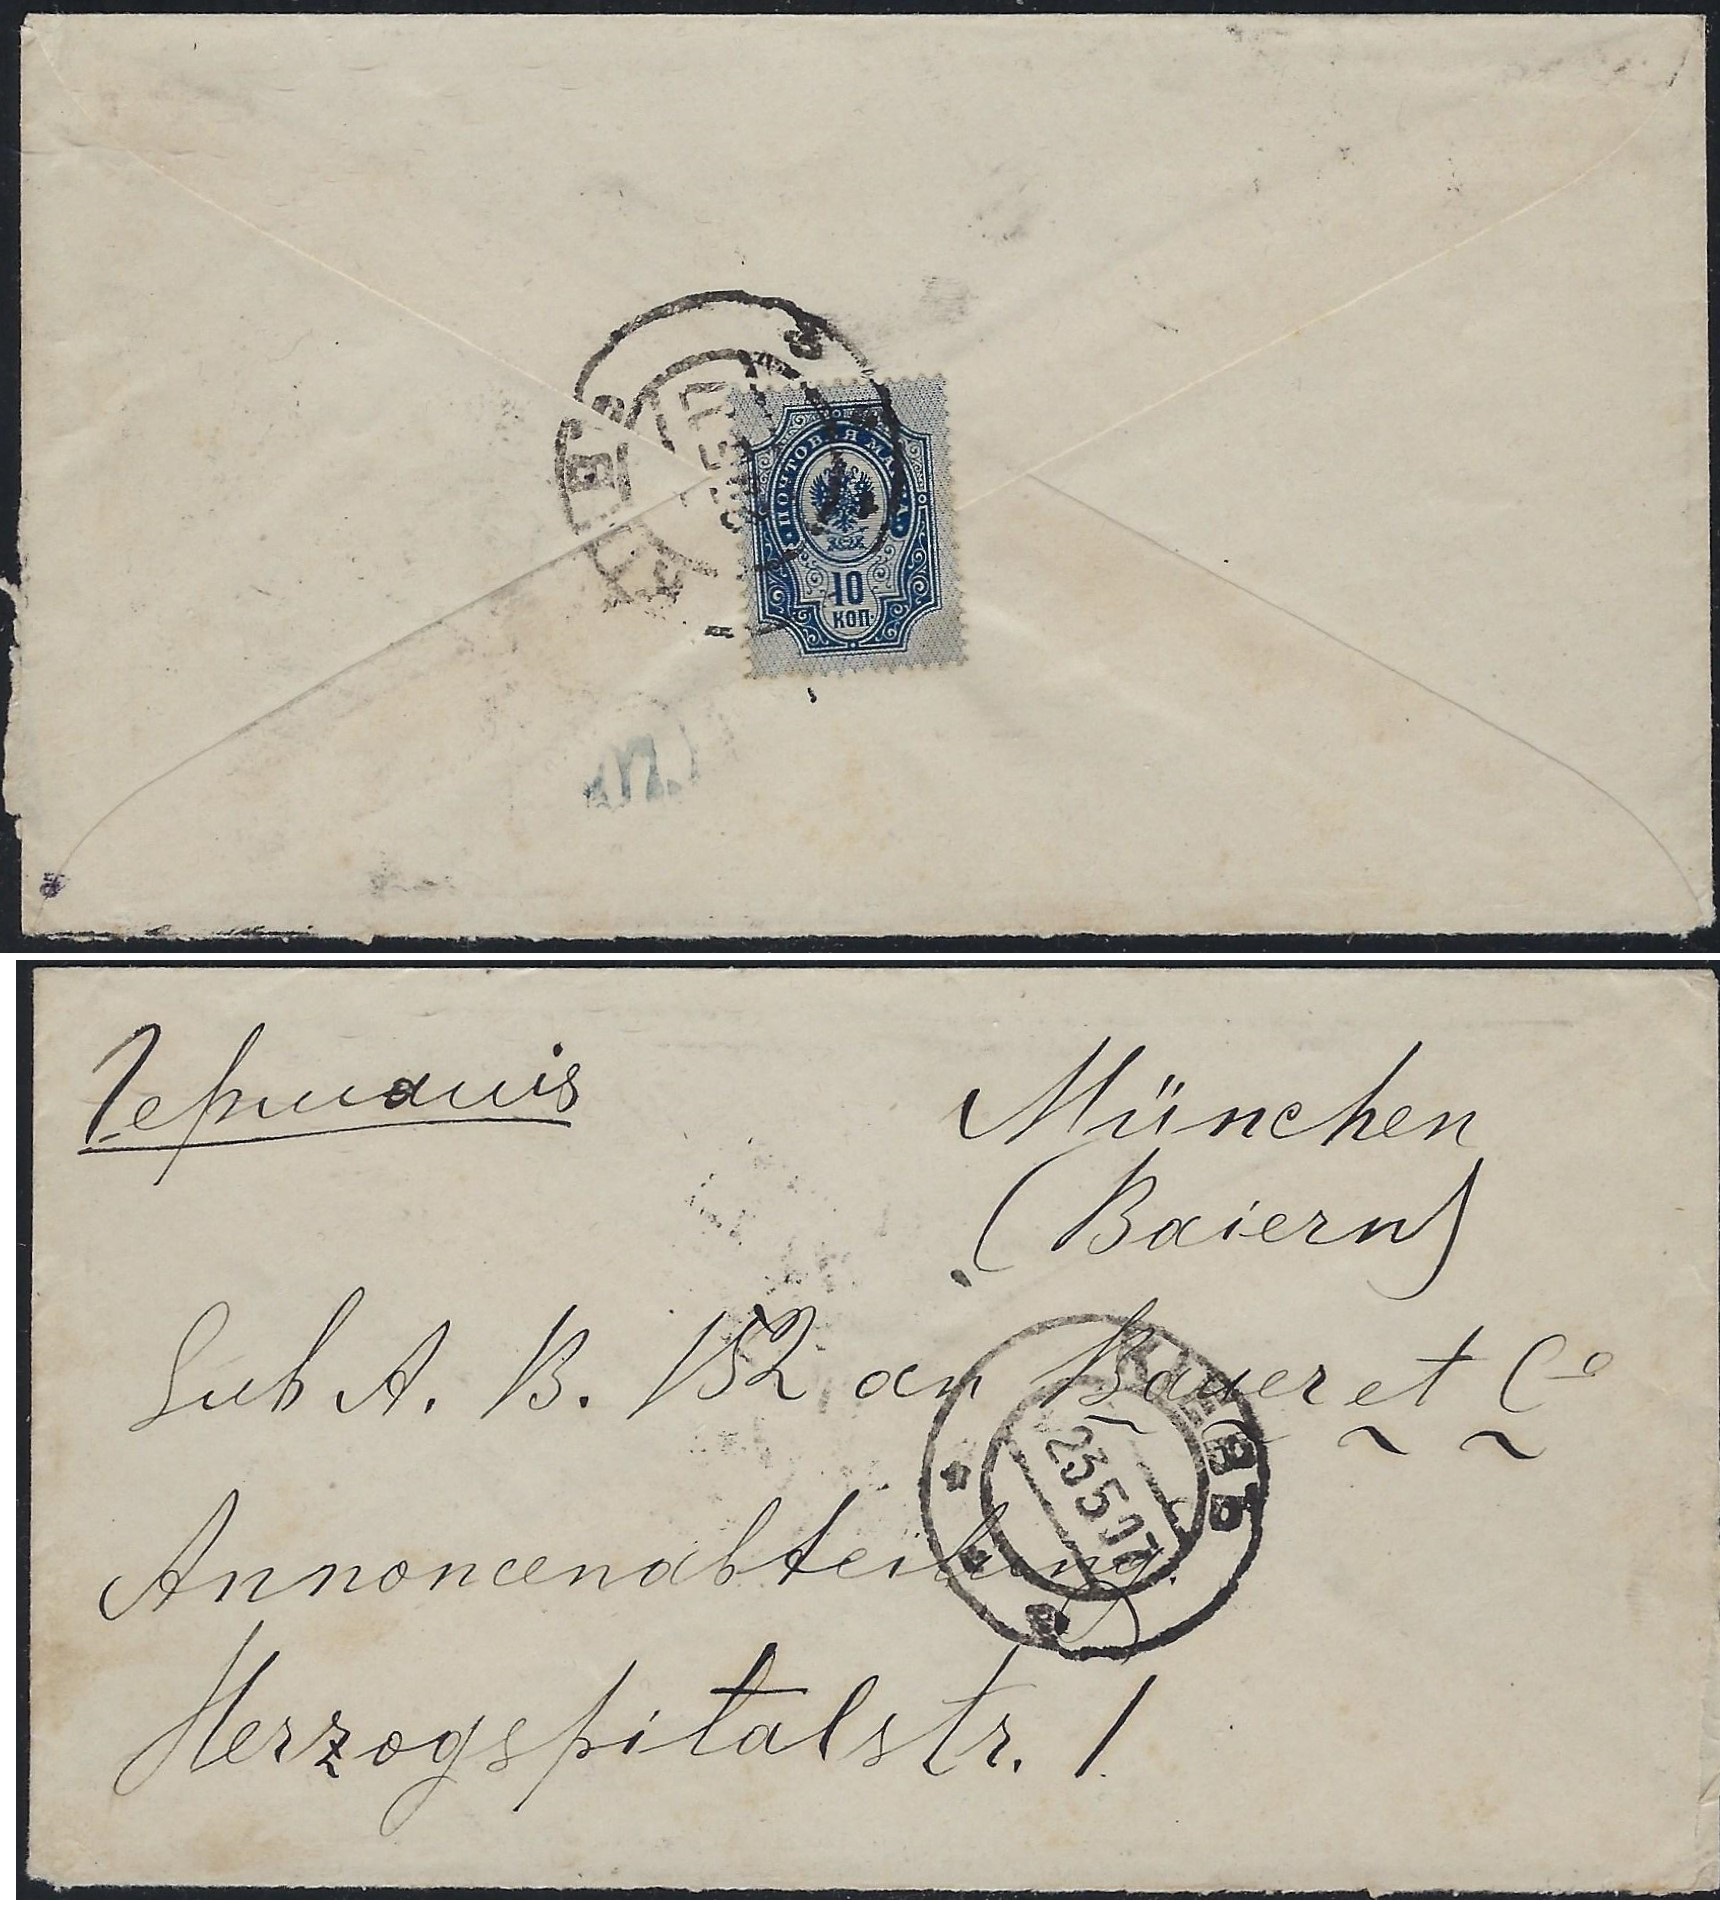 ПОЧТОВАЯ МАРКА
10
КОП.
Германія
München
(Baiern)
Sub A. B. 152 an Bauer et Co
КІЕВЪ
23 5 07
Annoncenabteilung.
Herzogspitalstr. 1